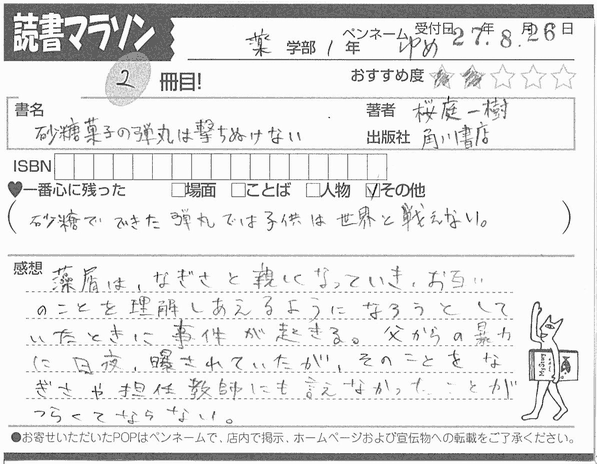 読書マラソン
薬 学部 1 年 ペンネーム ゆめ 受付日 27.年 8.月 26 日
2 冊目! おすすめ度 ★★☆☆☆
書名 砂糖菓子の弾丸は撃ちぬけない
著者 桜庭一樹
出版社 角川書店
ISBN
♥一番心に残った □場面 □ことば □人物 ☑その他
(砂糖でできた弾丸では子供は世界と戦えない。)
感想
藻屑は、なぎさと親しくなっていき、お互い
のことを理解しあえるようになろうとして
いたときに事件が起きる。父からの暴力
に日夜、曝されていたが、そのことをな
ぎさや担任教師にも言えなかったことが
つらくてならない。
Mystery
●お寄せいただいたPOPはペンネームで、店内で掲示、ホームページおよび宣伝物への転載をご了承ください。